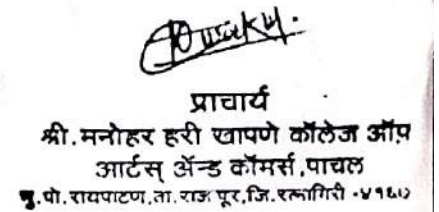 प्राचार्य
श्री.मनोहर हरी खापणे कॉलेज ऑफ
आर्टस् ॲन्ड कॉमर्स,पाचल
मु.पो.रायपाटण,ता.राजापूर,जि.रत्नागिरी -४१६७